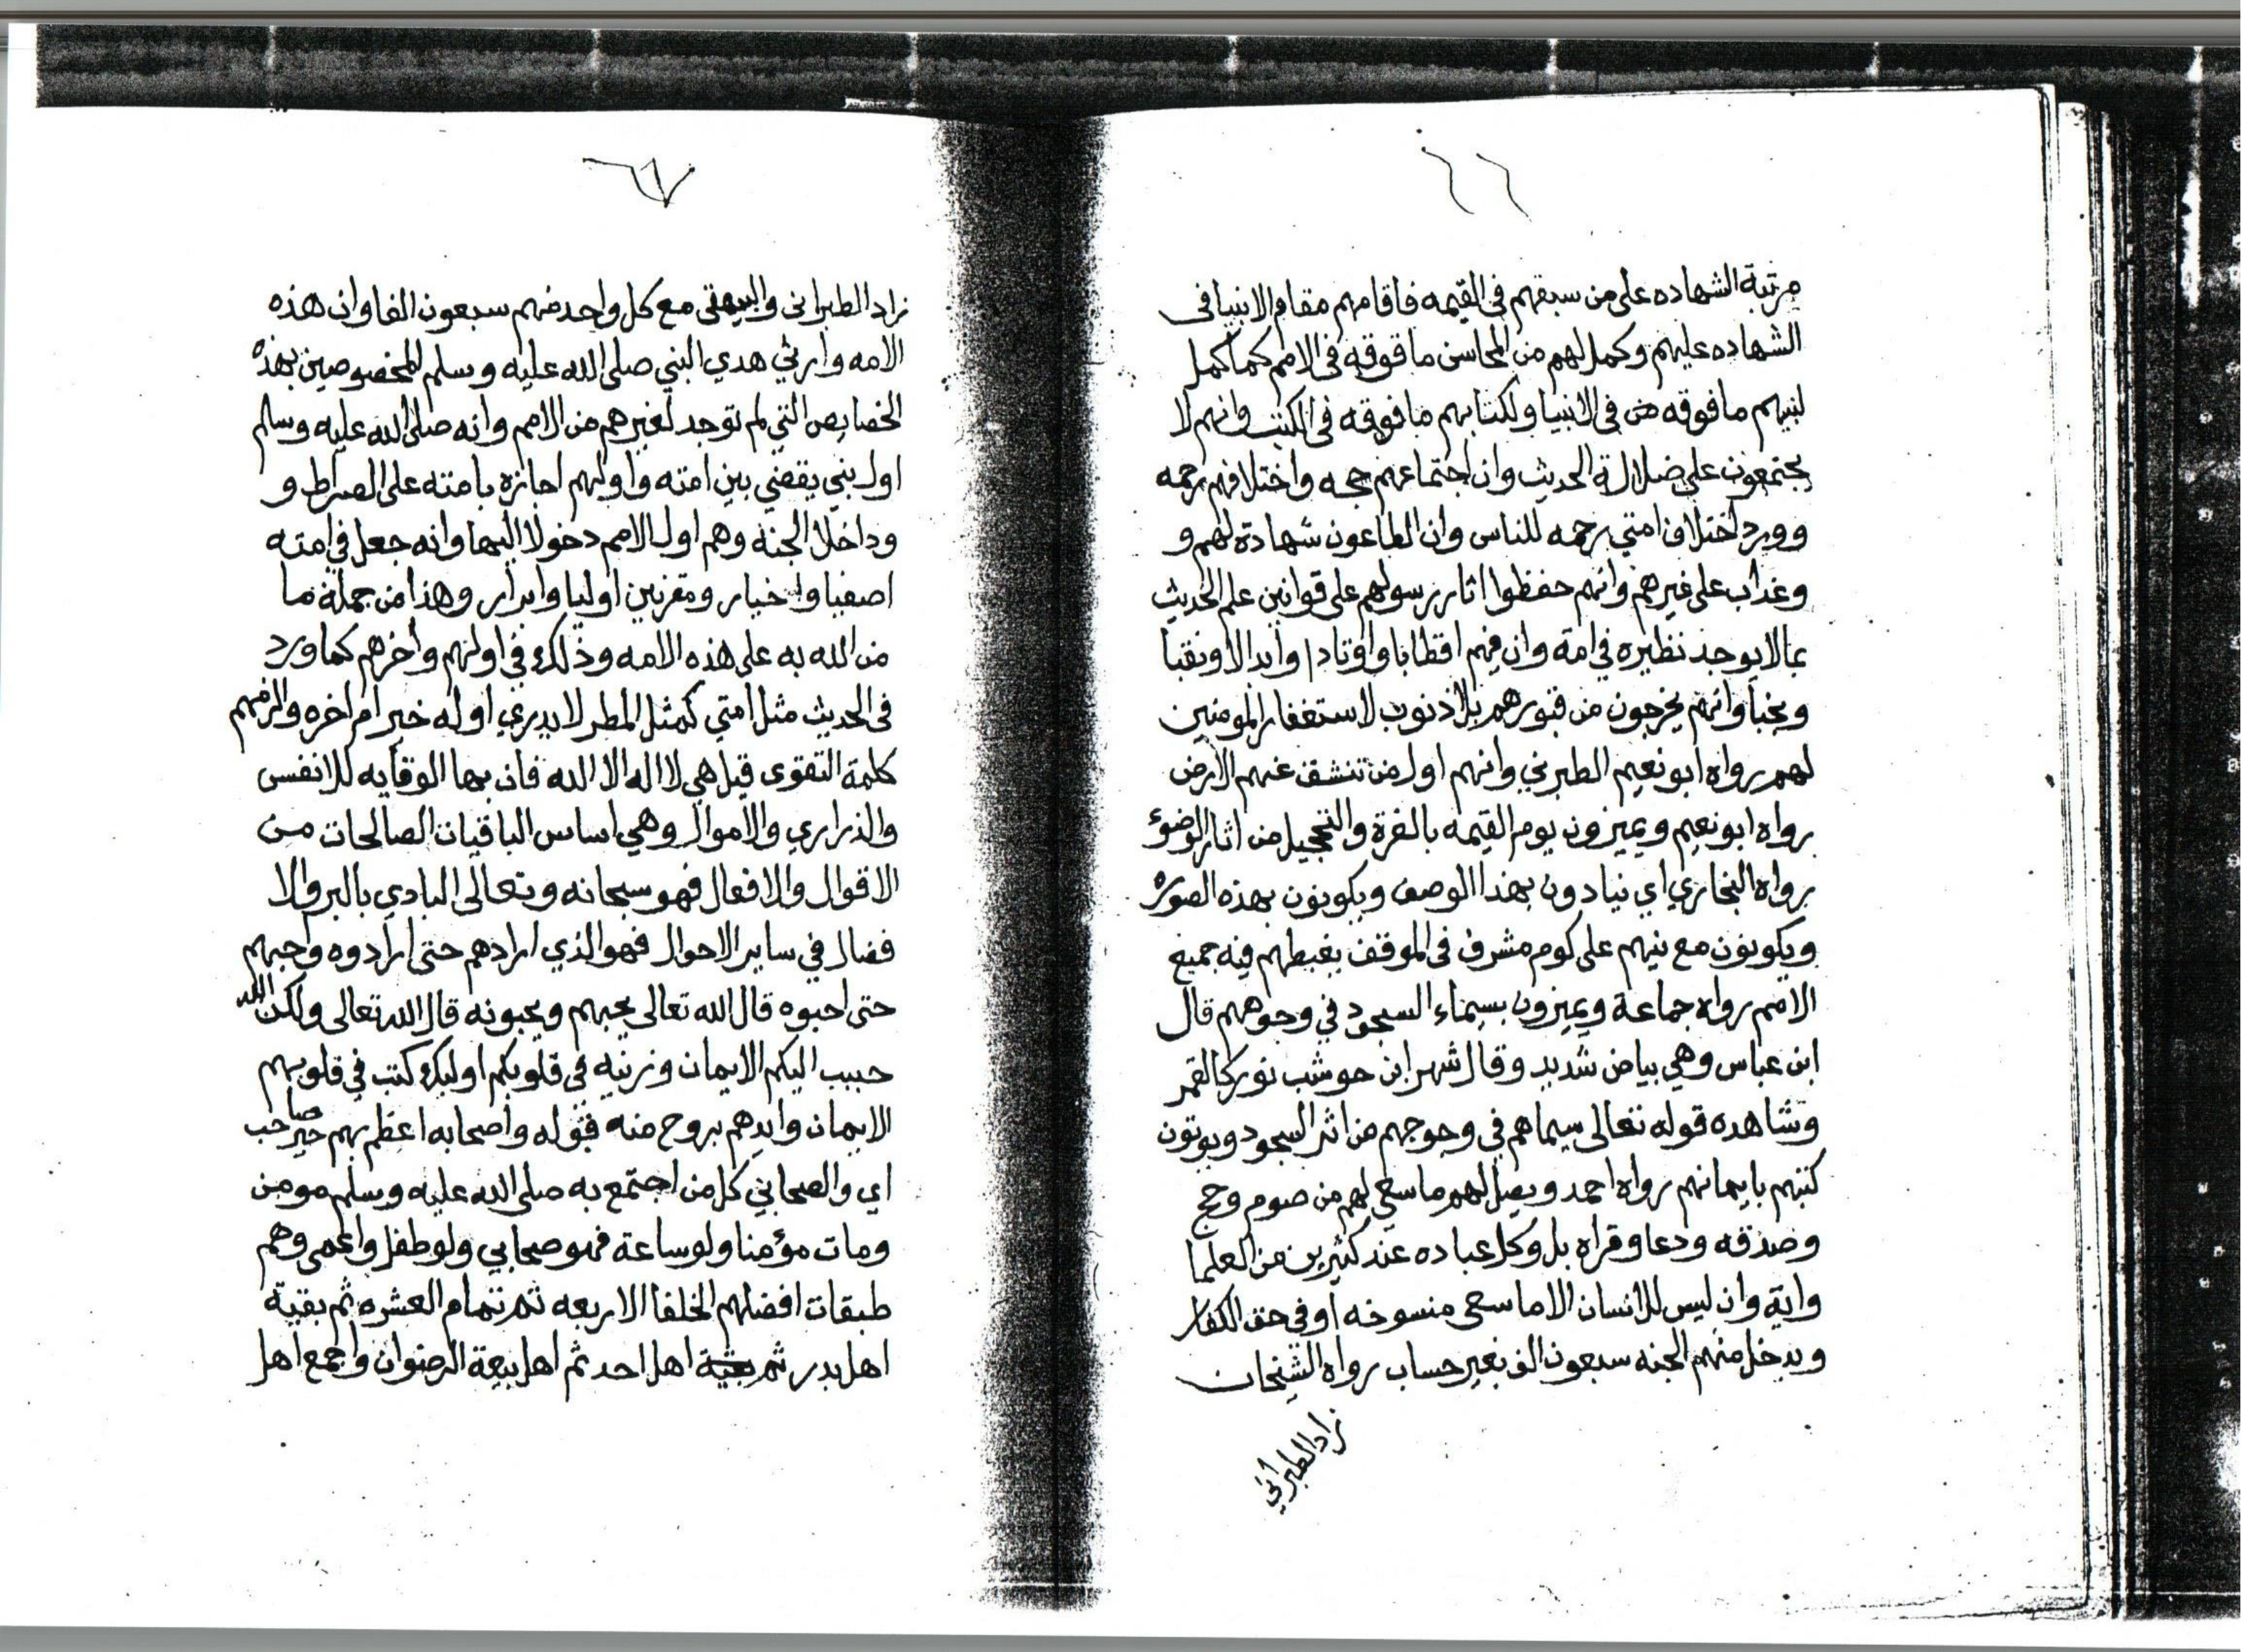 ٦٦
مرتبة الشهاده على من سبقهم في القيمه فاقامهم مقام الانبيا في
الشهاده عليهم وكمل لهم من المحاسن ما فوقه في الامم كما كمل
لنبيهم ما فوقه من في الانبيا ولكتابهم ما فوقه في الكتب وانهم لا
يجتمعون على ضلالة الحديث وان اجتماعهم حجه واختلافهم رحمه
وورد اختلاف امتي رحمه للناس وان الطاعون شهادة لهم و
وعذاب على غيرهم وانهم حفظوا اثار رسولهم على قوانين علم الحديث
بما لا يوجد نظيره في امة وان فيهم اقطابا واوتادا وابدالا ونقبا
ونجبا وانهم يخرجون من قبورهم بلا ذنوب لاستغفار المومنين
لهم رواه ابو نعيم الطبرني وانهم اول من تنشق عنهم الارض
رواه ابو نعيم ويميزون يوم القيمه بالغرة والتحجيل من اثار الوضؤ
رواه البخاري اي نيادون بهذا الوصف ويكونون بهذه الصوره
ويكونون مع نبيهم على كوم مشرف في الموقف يغبطهم فيه جميع
الامم رواه جماعة ويميزون بسيماء السجود في وجوههم قال
ابن عباس وهي بياض شديد وقال شهر ابن حوشب نور كالقمر
وشاهده قوله تعالى سيماهم في وجوههم من اثر السجود ويوتون
كتبهم بايمانهم رواه احمد ويصل لهم ما سعى لهم من صوم وحج
وصدقه ودعا وقراه بل وكل عباده عند كثيرين من العلما
واية وان ليس للانسان الا ما سعى منسوخه او في حق الكفار
ويدخل منهم الجنه سبعون الف بغير حساب رواه الشيخان
زاد الطبراني
٦٧
زاد الطبراني والبيهقى مع كل واحد منهم سبعون الفا وان هذه
الامه وارثي هدي النبي صلى الله عليه وسلم المخصوصين بهذه
الخصايص التي لم توجد لغيرهم من الامم وانه صلى الله عليه وسلم
اول نبي يقضي بين امته واولهم اجازه بامته على الصراط و
وداخلا الجنه وهم اول الامم دخولا اليها وانه جعل في امته
اصفيا واخيار ومقربين اوليا وابرار وهذا من جملة ما
من الله به على هذه الامه وذلك في اولهم واخرهم كما ورد
في الحديث مثل امتي كمثل المطر لا يدري اوله خير ام اخره والزمهم
كلمة التقوى قيل هي لا اله الا الله فان بها الوقايه للانفس
والذراري والاموال وهي اساس الباقيات الصالحات من
الاقوال والافعال فهو سبحانه وتعالى البادي بالبر والا
فضال في ساير الاحوال فهو الذي ارادهم حتى ارادوه وحبهم
حتى احبوه قال الله تعالى يحبهم ويحبونه قال الله تعالى ولكن الله
حبب اليكم الايمان وزينه في قلوبكم اوليك كتب في قلوبهم
الايمان وايدهم بروح منه قوله واصحابه اعظم بهم خير صاحب
اي والصحابي كل من اجتمع به صلى الله عليه وسلم مومن
ومات مؤمنا ولو ساعة فهو صحابي ولو طفل واعمى وهم
طبقات افضلهم الخلفا الاربعه ثم تمام العشره ثم بقية
اهل بدر ثم اهل احد ثم اهل بيعة الرضوان واجمع اهل